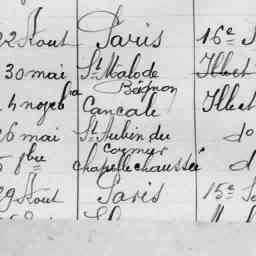 22 Aout Paris 16e
30 mai St Malo de
Beignon Illet
4 9bre Cancale Illet
26 mai St Aubin du do
Cormier
5 8bre chapelle chaussée d
29 Aout Paris 15e